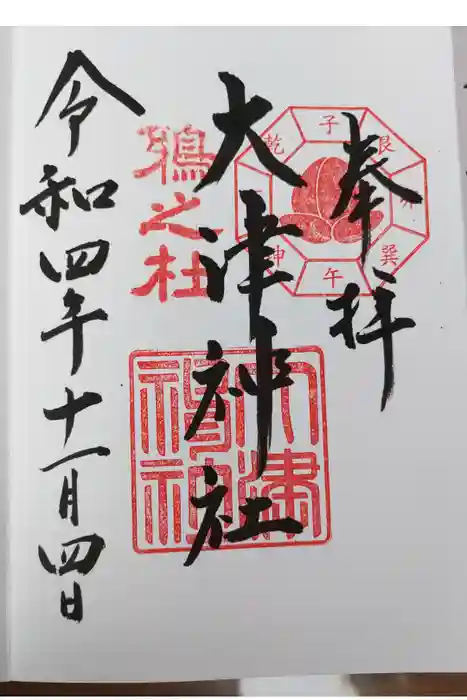 奉拝
子
艮
巽
午
坤
乾
大津神社
鴉之杜
大津
神社
令和四年十一月四日